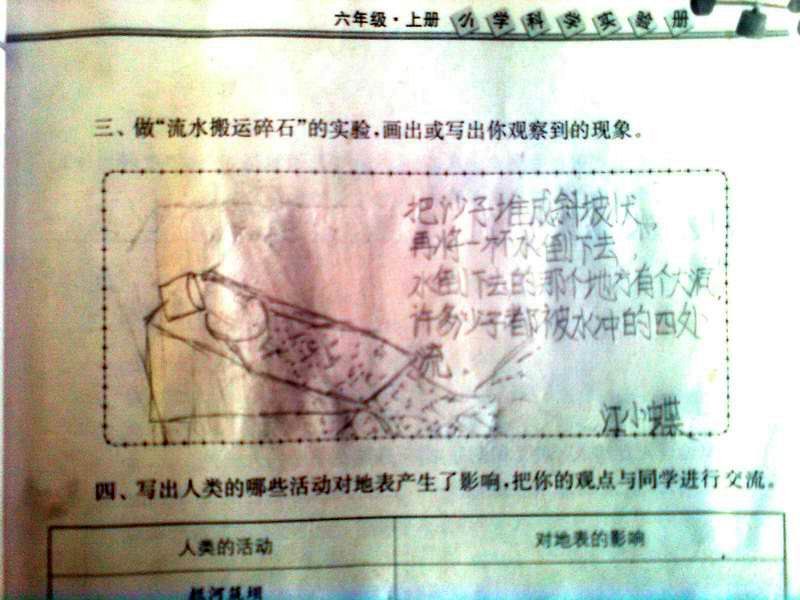 六年级·上册 小学科学实验册
三、做“流水搬运碎石”的实验,画出或写出你观察到的现象。
把沙子堆成斜坡状,
再将一杯水倒下去,
水倒下去的那个地方有个大洞,
许多沙子都被水冲的四处
流.
汪小蝶
四、写出人类的哪些活动对地表产生了影响,把你的观点与同学进行交流。
人类的活动
对地表的影响